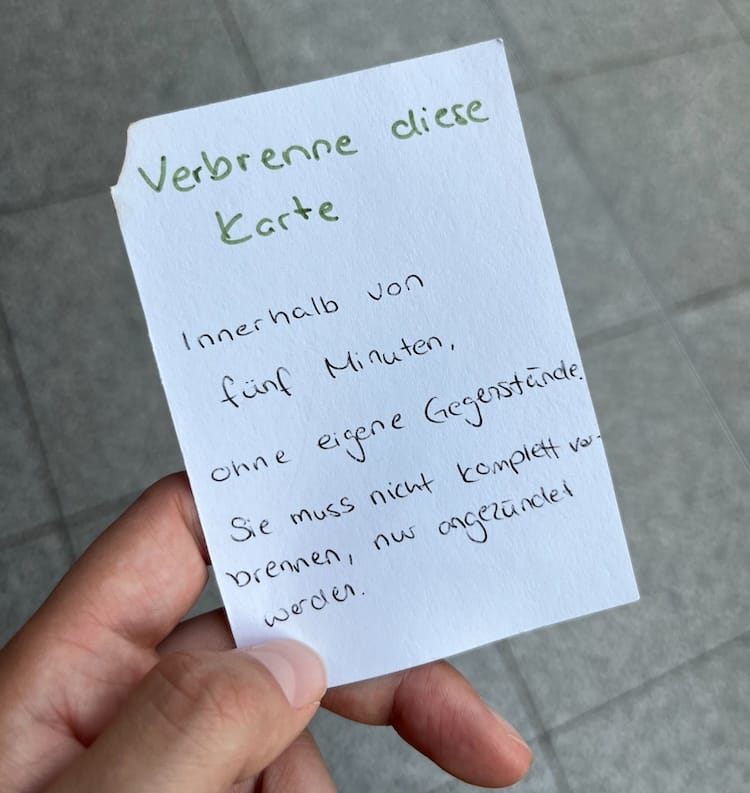 Verbrenne diese
Karte
Innerhalb von
fünf Minuten,
ohne eigene Gegenstände.
Sie muss nicht komplett ver-
brennen, nur angezündet
werden.